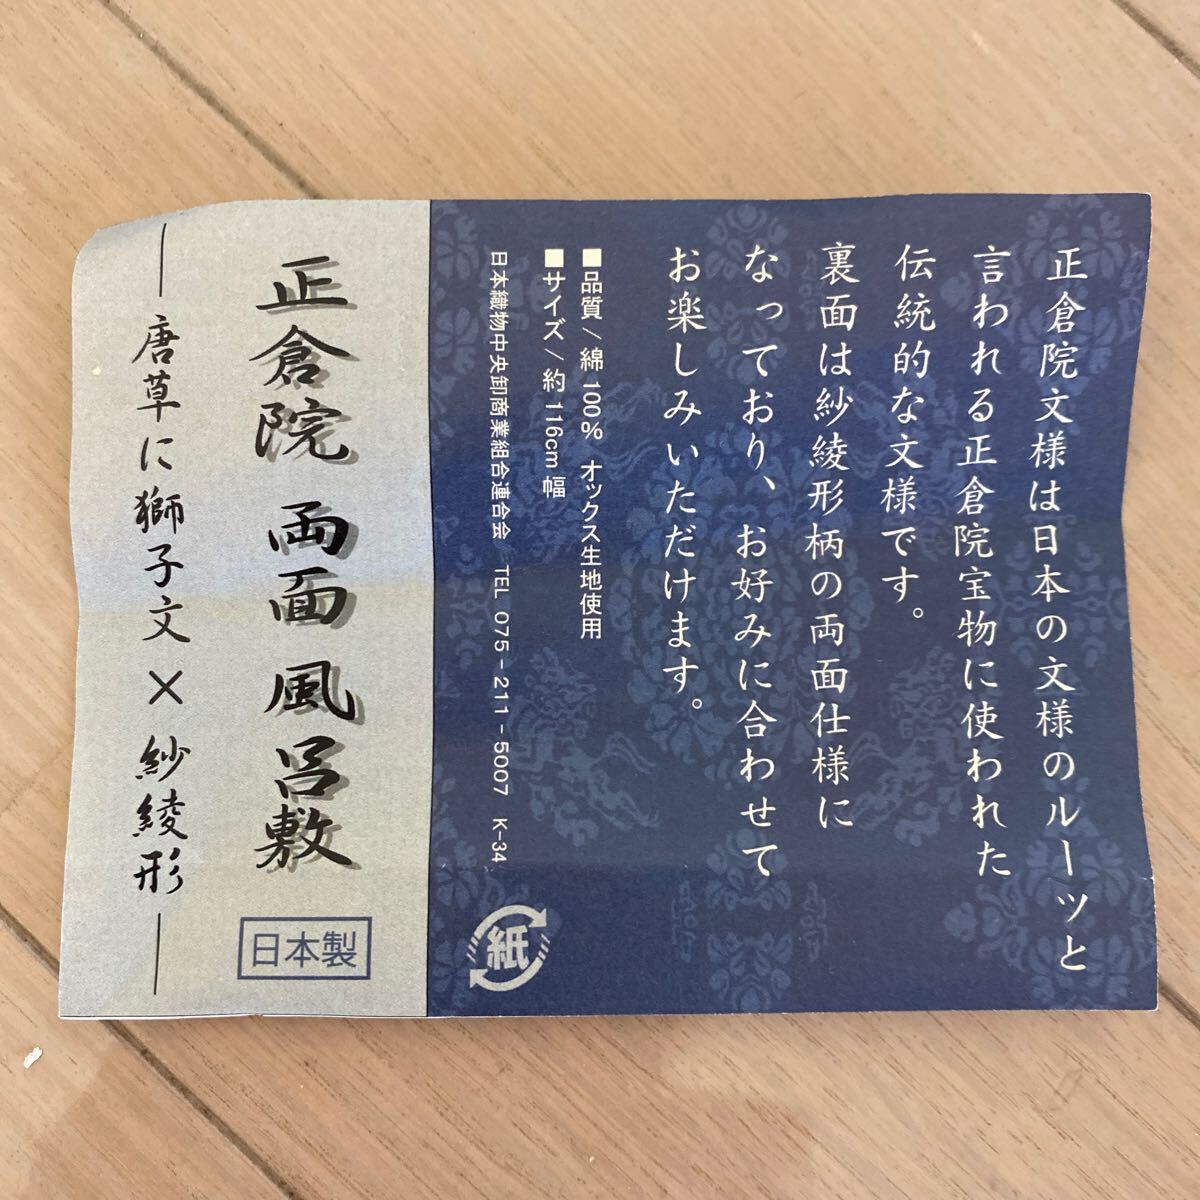 正倉院文様は日本の文様のルーツと
言われる正倉院宝物に使われた
伝統的な文様です。
裏面は紗綾形柄の両面仕様に
なっており、お好みに合わせて
お楽しみいただけます。
■品質/綿100% オックス生地使用
■サイズ/約116cm幅
日本織物中央卸商業組合連合会 TEL 075-211-5007 K-34
紙
正倉院 両面 風呂敷
日本製
唐草に獅子文×紗綾形